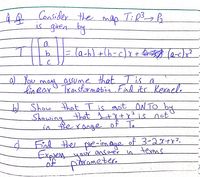 4. Q Consider the map T: R³ → P₂
is given by
T [a b c] = (a-b) + (b-c)x + (a-c)x²
a) You may assume that T is a
linear Transformation. Find its kernel.
b) Show that T is not ONTO by
Showing that 1+x+x² is not
in the range of T.
c) Find the pre-image of 3-2x+x².
Express your answer in terms
of parameter.